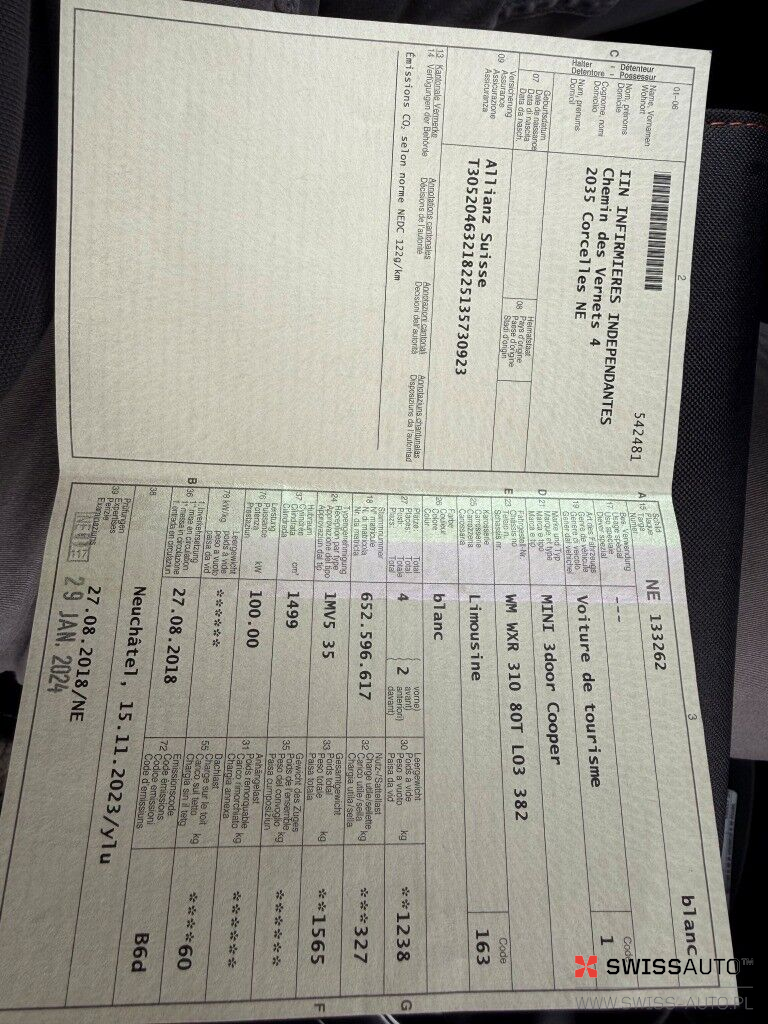 2
542481
01-06
C
Détenteur
Possessur
Halter
Detentore
Name, Vornamen
Wohnort
Nom, prénoms
Domicile
Cognome, nomi
Domicilio
Num, prenums
Domicil
IIN INFIRMIERES INDEPENDANTES
Chemin des Vernets 4
2035 Corcelles NE
07
Geburtsdatum
Date de naissance
Data di nascita
Data da nasch.
08
Heimatstaat
Pays d'origine
Paese d'origine
Stadi d'origin
09
Versicherung
Assurance
Assicurazione
Assicuranza
Allianz Suisse
T30520463218225135730923
13
14
Kantonale Vermerke
Verfügungen der Behörde
Annotations cantonales
Décisions de l'autorité
Annotazioni cantonali
Decisioni dell'autorità
Annotaziuns chantunalas
Disposiziuns da l'autoritad
Émissions CO2 selon norme NEDC 122g/km
3
A
15
Schild
Plaque
Targa
Numer
NE 133262
blanc
17
Bes. Verwendung
Usage spécial
Uso speciale
Diever spezial
---
19
Art des Fahrzeugs
Genre de véhicule
Genere di veicolo
Gener dal vehichel
Voiture de tourisme
Code
1
D
21
Marke und Typ
Marque et type
Marca e tipo
Marca e tip
MINI 3door Cooper
E
23
Fahrgestell-Nr.
Châssis no
Telaio n.
Schassis nr.
WM WXR 310 80T L03 382
25
Karosserie
Carrosserie
Carrozzeria
Carossaria
Limousine
Code
163
26
Farbe
Couleur
Colore
Colur
blanc
27
Plätze: Total
Places: Totale
Posti: Total
Plazs: Total
4
vorne)
avant)
anteriori)
davant)
2
30
Leergewicht
Poids à vide
Peso a vuoto
Paisa da vid
kg
**1238
G
18
Stammnummer
N° matricule
N. di matricola
Nr. da matricla
652.596.617
32
Nutz-/Sattellast
Charge utile/sellette
Carico utile/sella
Chargia utila/sella
***327
24
Typengenehmigung
Réception par type
Approvazione del tipo
Approvaziun dal tip
1MV5 35
33
Gesamtgewicht
Poids total
Peso totale
Paisa totala
kg
**1565
F
37
Hubraum
Cylindrée
Cilindrata
cm³
1499
35
Gewicht des Zuges
Poids de l'ensemble
Peso del convoglio
Paisa cumposiziun
kg
******
76
Leistung
Puissance
Potenza
Prestaziun
kW
100.00
31
Anhängelast
Poids remorquable
Carico rimorchiato
Chargia annexa
kg
******
78
kW/kg
Leergewicht
Poids à vide
peso a vuoto
paisa da vid
******
55
Dachlast
Charge sur le toit
Carico sul tetto
Chargia sin il tetg
kg
****60
B
36
1. Inverkehrsetzung
1re mise en circulation
1. messa in circolazione
1. entrada en circulaziun
27.08.2018
72
Emissionscode
Code émissions
Codice emissioni
Code d'emissiuns
B6d
38
Neuchâtel, 15.11.2023/ylu
39
Prüfungen
Expertises
Perizie
Examinaziuns
27.08.2018/NE
NE
117
29 JAN. 2024
SWISSAUTO™
WWW.SWISS-AUTO.PL